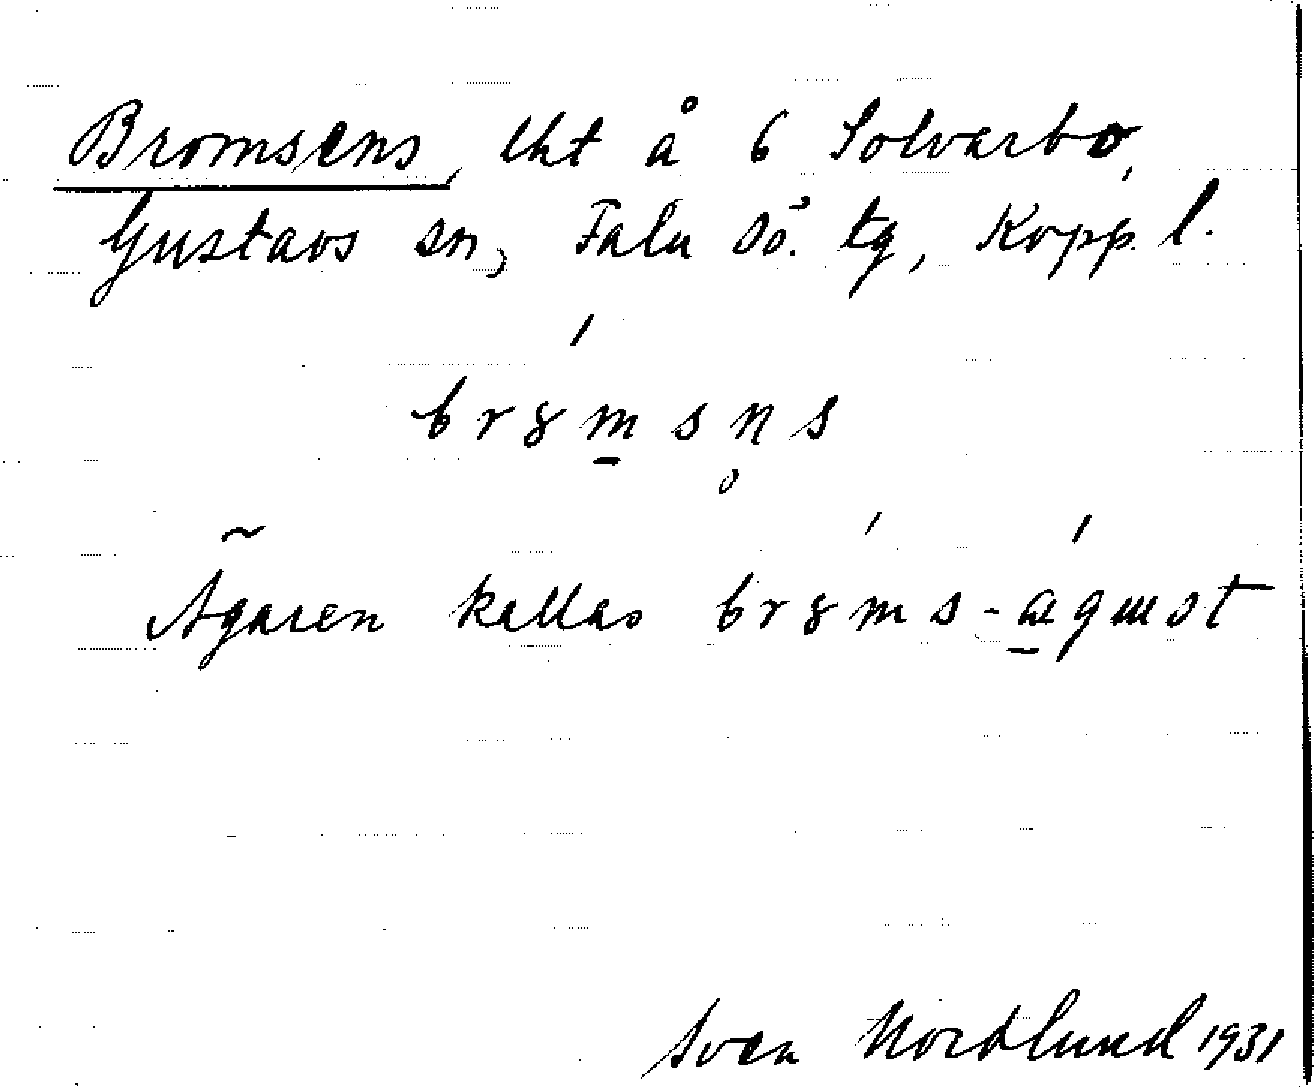 Bromsens, lht å 6 Solvarbo,
Gustavs sn, Falu sö. tg, Kopp. l.
br8msn̥s
Ägaren kallas br8ms-agust
Sven Nordlund 1931